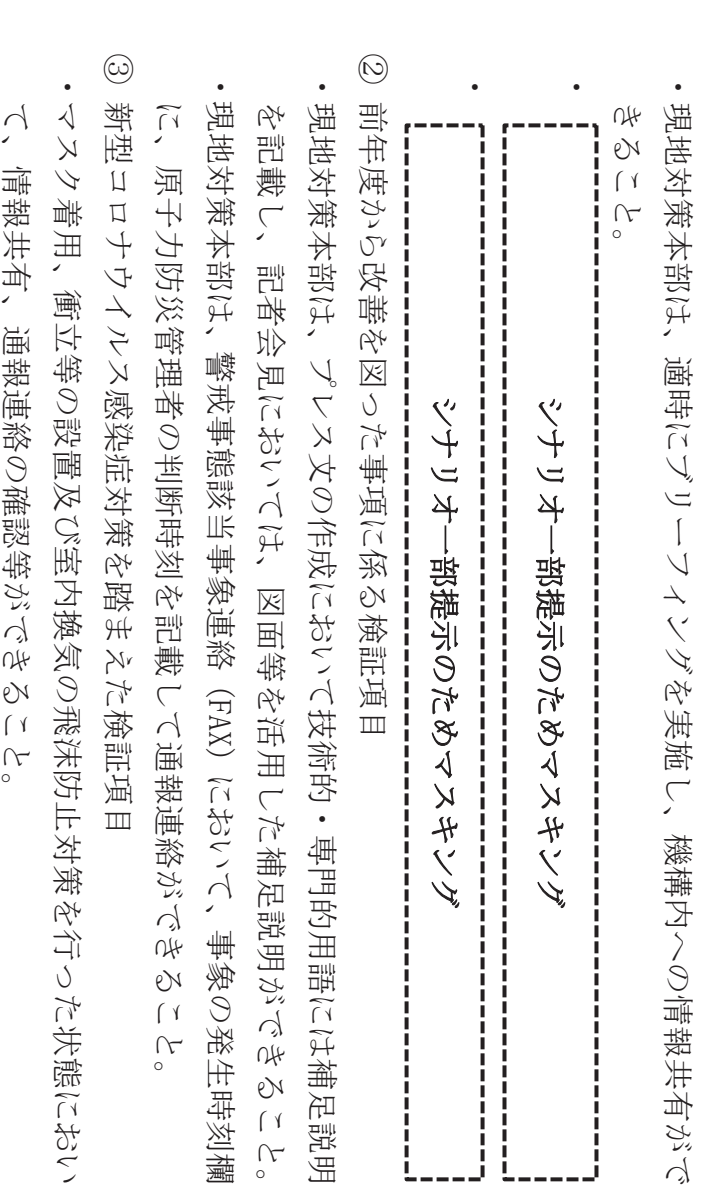 ・現地対策本部は、適時にブリーフィングを実施し、機構内への情報共有がで
きること。
・シナリオ一部提示のためマスキング
・シナリオ一部提示のためマスキング
② 前年度から改善を図った事項に係る検証項目
・現地対策本部は、プレス文の作成において技術的・専門的用語には補足説明
を記載し、記者会見においては、図面等を活用した補足説明ができること。
・現地対策本部は、警戒事態該当事象連絡（FAX）において、事象の発生時刻欄
に、原子力防災管理者の判断時刻を記載して通報連絡ができること。
③ 新型コロナウイルス感染症対策を踏まえた検証項目
・マスク着用、衝立等の設置及び室内換気の飛沫防止対策を行った状態におい
て、情報共有、通報連絡の確認等ができること。